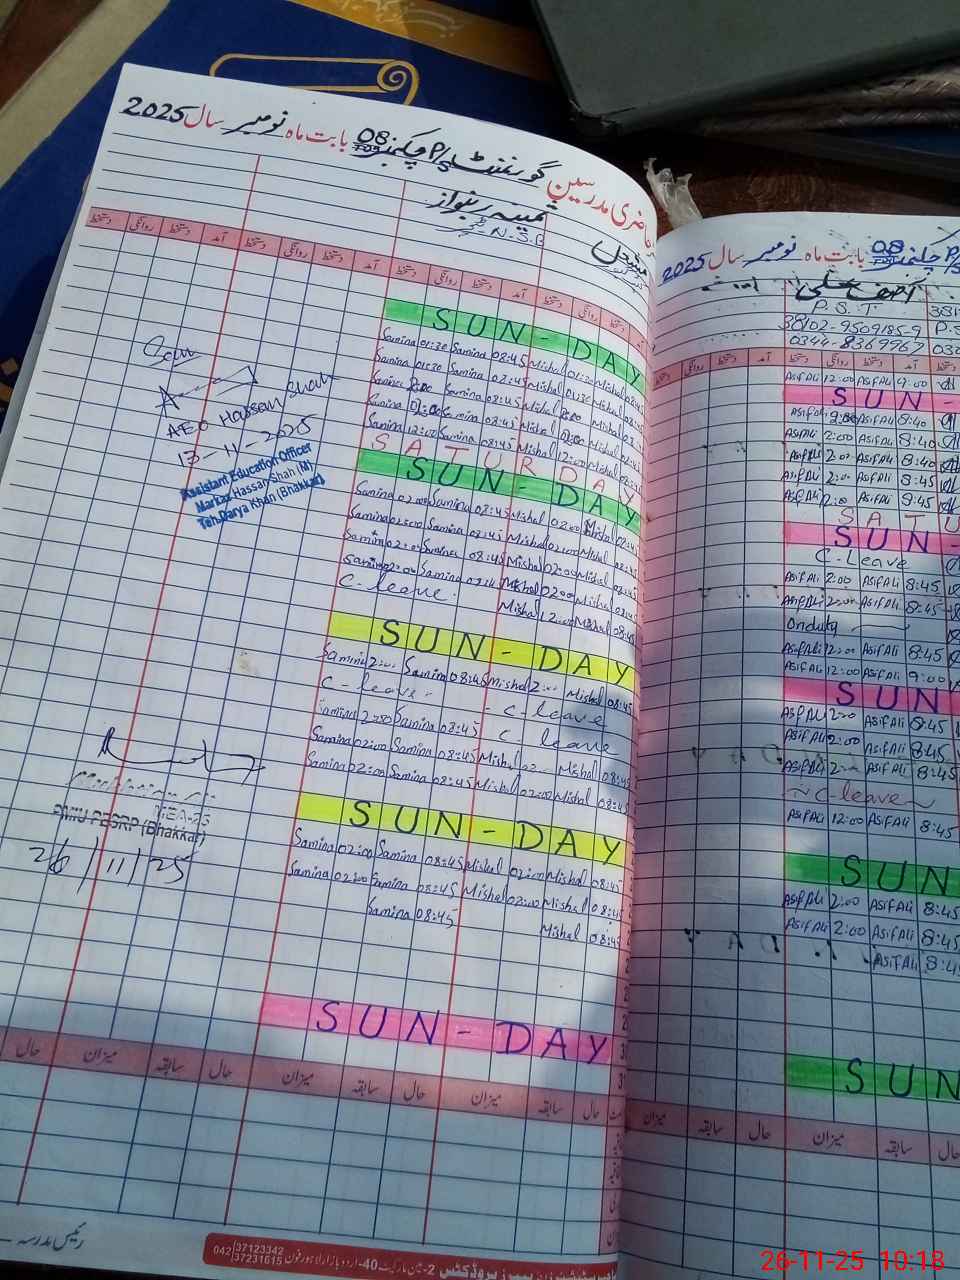 حاضری مدرسین گورنمنٹ P/S چکنمبر 08 بابت ماہ نومبر سال 2025
ثمینہ ربنواز
مشعل
N.S.B
دستخط روانگی دستخط آمد دستخط روانگی دستخط آمد دستخط روانگی دستخط آمد دستخط روانگی دستخط
SUN-DAY
Samina 01:30 Samina 08:45 Mishal 01:30 Mishal
Samina 01:30 Samina 08:45 Mishal 01:30 Mishal
Samina 2:00 Samina 08:45 Mishal 2:00 Mishal
Samina 02:00 Samina 08:45 Mishal 02:00 Mishal
Samina 12:00 Samina 08:45 Mishal 12:00 Mishal
SATURDAY
SUN-DAY
Samina 02:00 Samina 08:45 Mishal 02:00 Mishal 08:45
Samina 02:00 Samina 08:45 Mishal 02:00 Mishal 08:45
Samina 02:00 Samina 08:45 Mishal 02:00 Mishal 08:45
Samina 02:00 Samina Mishal 02:00 Mishal 08:45
C-leave. Mishal 12:00 Mishal 08:45
SUN-DAY
Samina 2:00 Samina 08:45 Mishal 2:00 Mishal 08:45
C-leave - C-leave
Samina 2:00 Samina 08:45 - C leave
Samina 02:00 Samina 08:45 Mishal 02 Mishal 08:45
Samina 02:00 Samina 08:45 Mishal 02:00 Mishal 08:45
SUN-DAY
Samina 02:00 Samina 08:45 Mishal 02:00 Mishal 08:45
Samina 02:00 Samina 08:45 Mishal 02:00 Mishal 08:45
Samina 08:45 Mishal 08:45
SUN-DAY
30
31
حال میزان سابقہ حال میزان سابقہ حال میزان سابقہ حال
رئیس مدرسہ
042 37123342
37231615
2-مین مارکیٹ 40-اردو بازار لاہور فون
Seen
AEO Hassan Shah
13-11-2025
Assistant Education Officer
Markaz Hassan Shah (M)
Teh. Darya Khan (Bhakkar)
MEA-25
PMIU PESRP (Bhakkar)
26/11/25
P/S چکنمبر 08 بابت ماہ نومبر سال 2025
آصف علی
P.S.T
38102-9509185-9
0344-8369967
دستخط آمد دستخط روانگی دستخط آمد دستخط
Asif Ali 12:00 Asif Ali 9:00
SUN-
Asif Ali 2:00 Asif Ali 8:40
Asif Ali 2:00 Asif Ali 8:40
Asif Ali 2:00 Asif Ali 8:40
Asif Ali 2:00 Asif Ali 8:45
Asif Ali 2:0 Asif Ali 8:45
SATU
SUN-
C-Leave
Asif Ali 2:00 Asif Ali 8:45
Asif Ali 2:00 Asif Ali 8:45
Onduty
Asif Ali 2:00 Asif Ali 8:45
Asif Ali 12:00 Asif Ali 9:00
SUN
Asif Ali 2:00 Asif Ali 8:45
Asif Ali 2:00 Asif Ali 8:45
Asif Ali 2:00 Asif Ali 8:45
~C-leave~
Asif Ali 12:00 Asif Ali 8:45
SUN
Asif Ali 2:00 Asif Ali 8:45
Asif Ali 2:00 Asif Ali 8:45
Asif Ali 8:4
SUN
میزان سابقہ حال میزان سابقہ حال
26-11-25 10:18